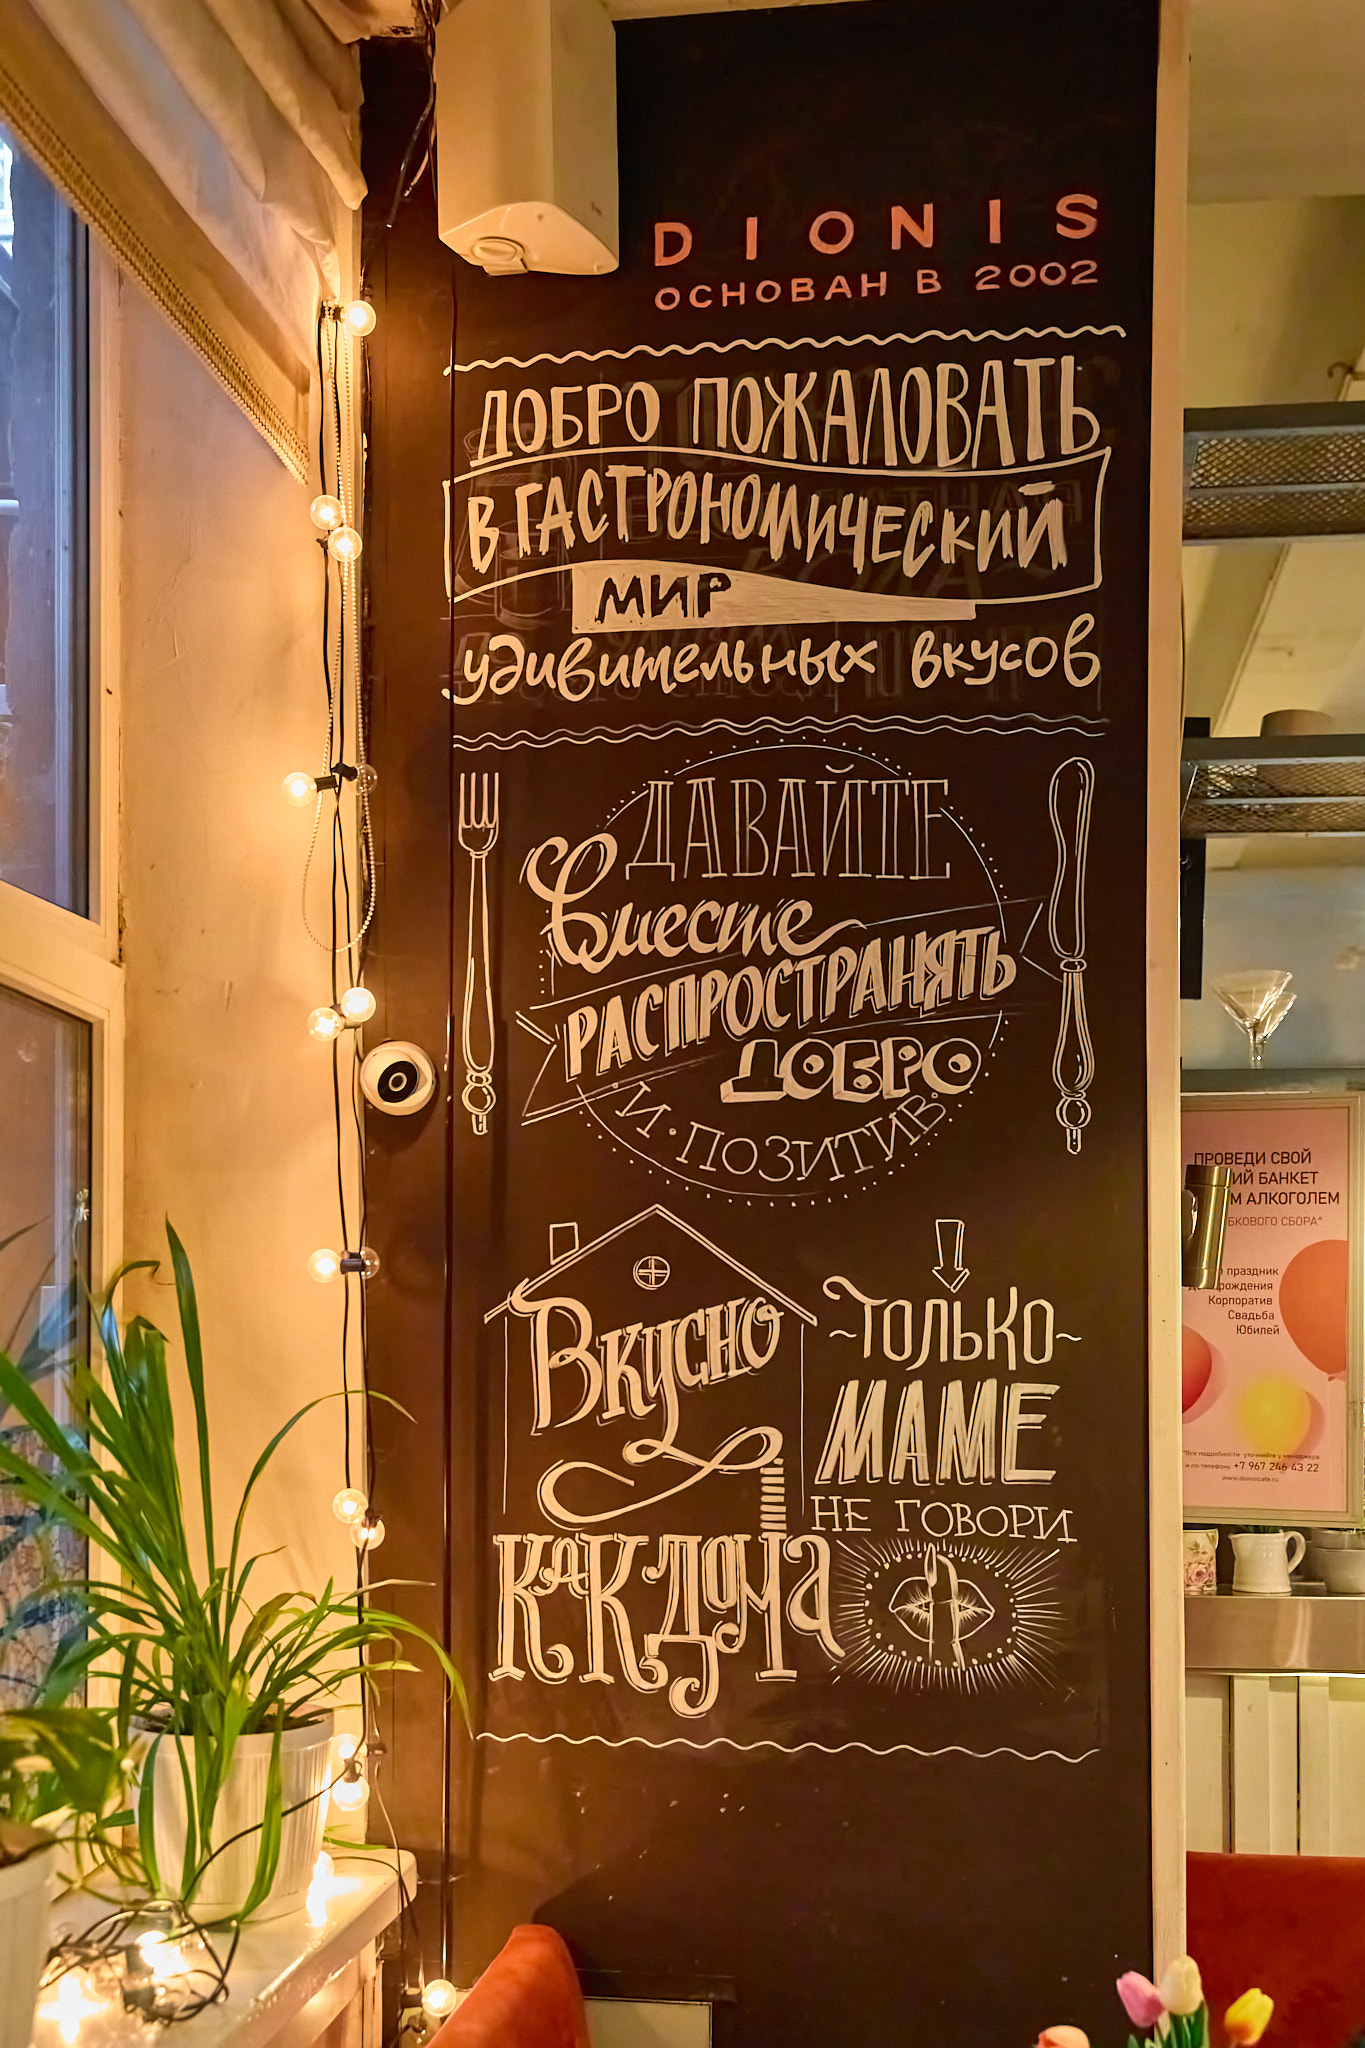 DIONIS
ОСНОВАН В 2002
ДОБРО ПОЖАЛОВАТЬ
В ГАСТРОНОМИЧЕСКИЙ
МИР
удивительных вкусов
ДАВАЙТЕ
Вместе
РАСПРОСТРАНЯТЬ
ДОБРО
И · ПОЗИТИВ
Вкусно
КАК ДОМА
ТОЛЬКО
МАМЕ
НЕ ГОВОРИ
ПРОВЕДИ СВОЙ
БАНКЕТ
АЛКОГОЛЕМ
СБОРА*
праздник
рождения
Корпоратив
Свадьба
Юбилей
*Все подробности уточняйте у менеджера
и по телефону +7 967 246 43 22
www.dioniscafe.ru